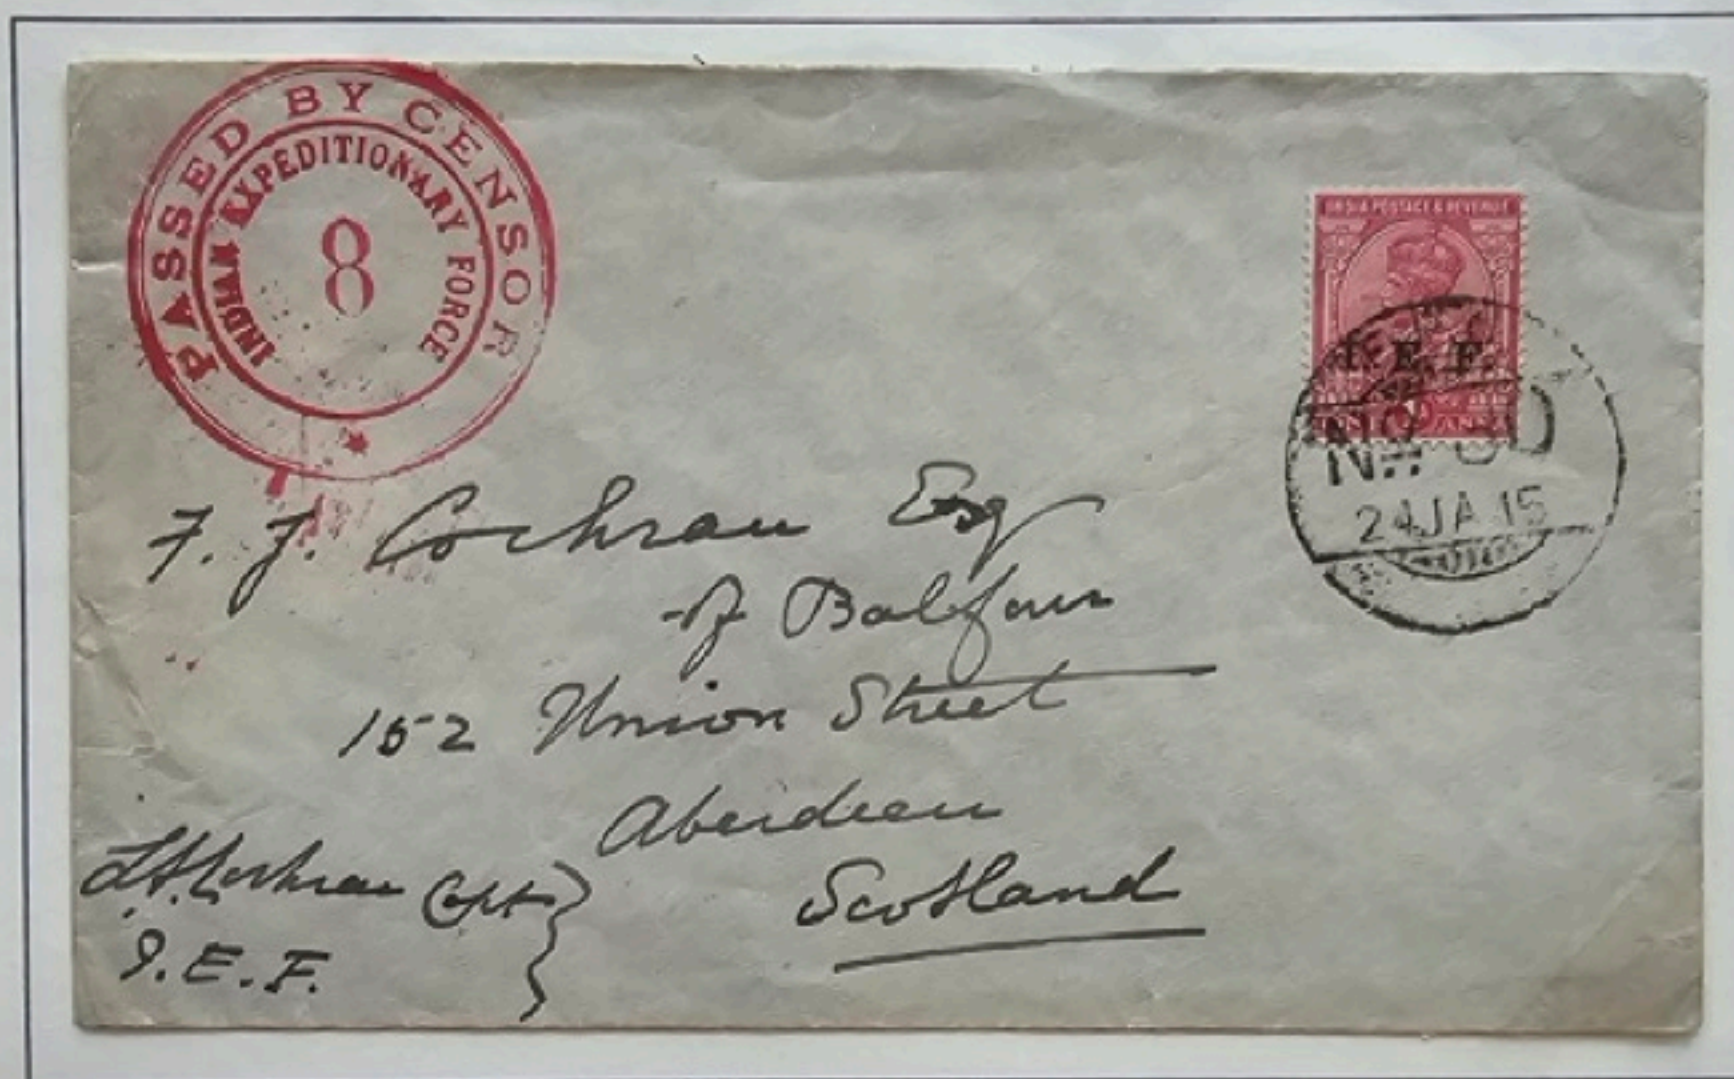 PASSED BY CENSOR
INDIAN EXPEDITIONARY FORCE
8
INDIA POSTAGE & REVENUE
I. E. F.
24 JA 15
F. J. Cochran Esq
of Balfour
152 Union Street
Aberdeen
Scotland
Cochran Capt
I.E.F.